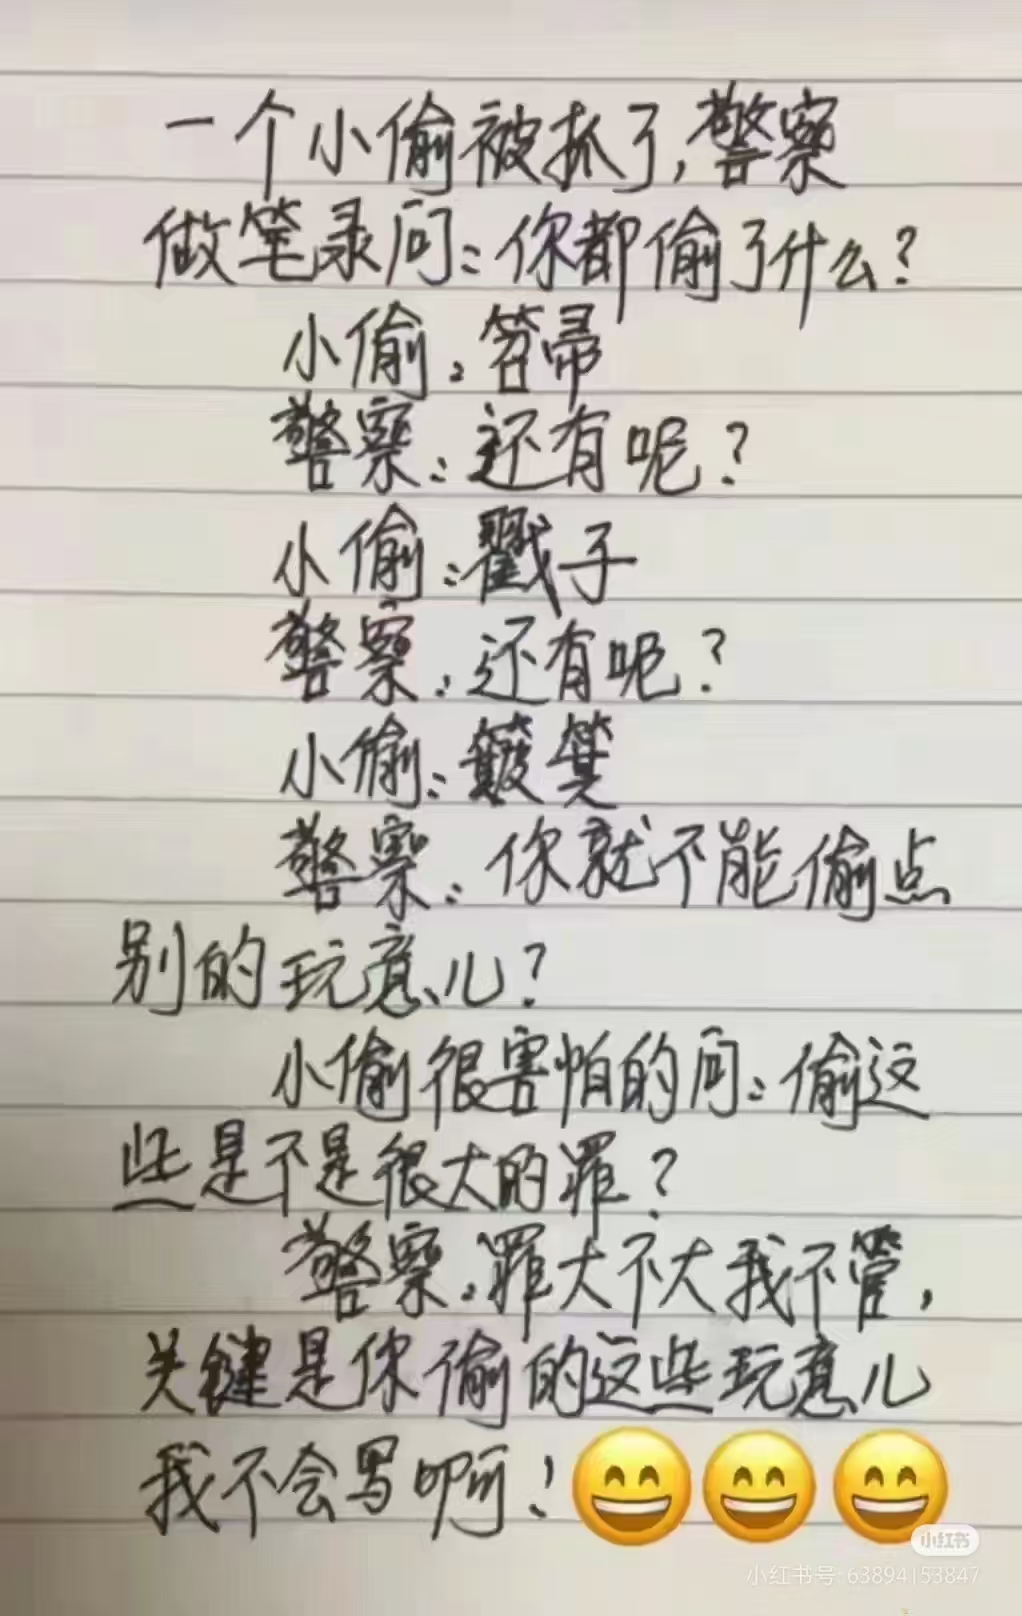 一个小偷被抓了,警察
做笔录问:你都偷了什么?
小偷:笤帚
警察:还有呢?
小偷:戳子
警察:还有呢?
小偷:簸箕
警察:你就不能偷点
别的玩意儿?
小偷很害怕的问:偷这
些是不是很大的罪?
警察:罪大不大我不管,
关键是你偷的这些玩意儿
我不会写啊!
小红书
小红书号:63894153847